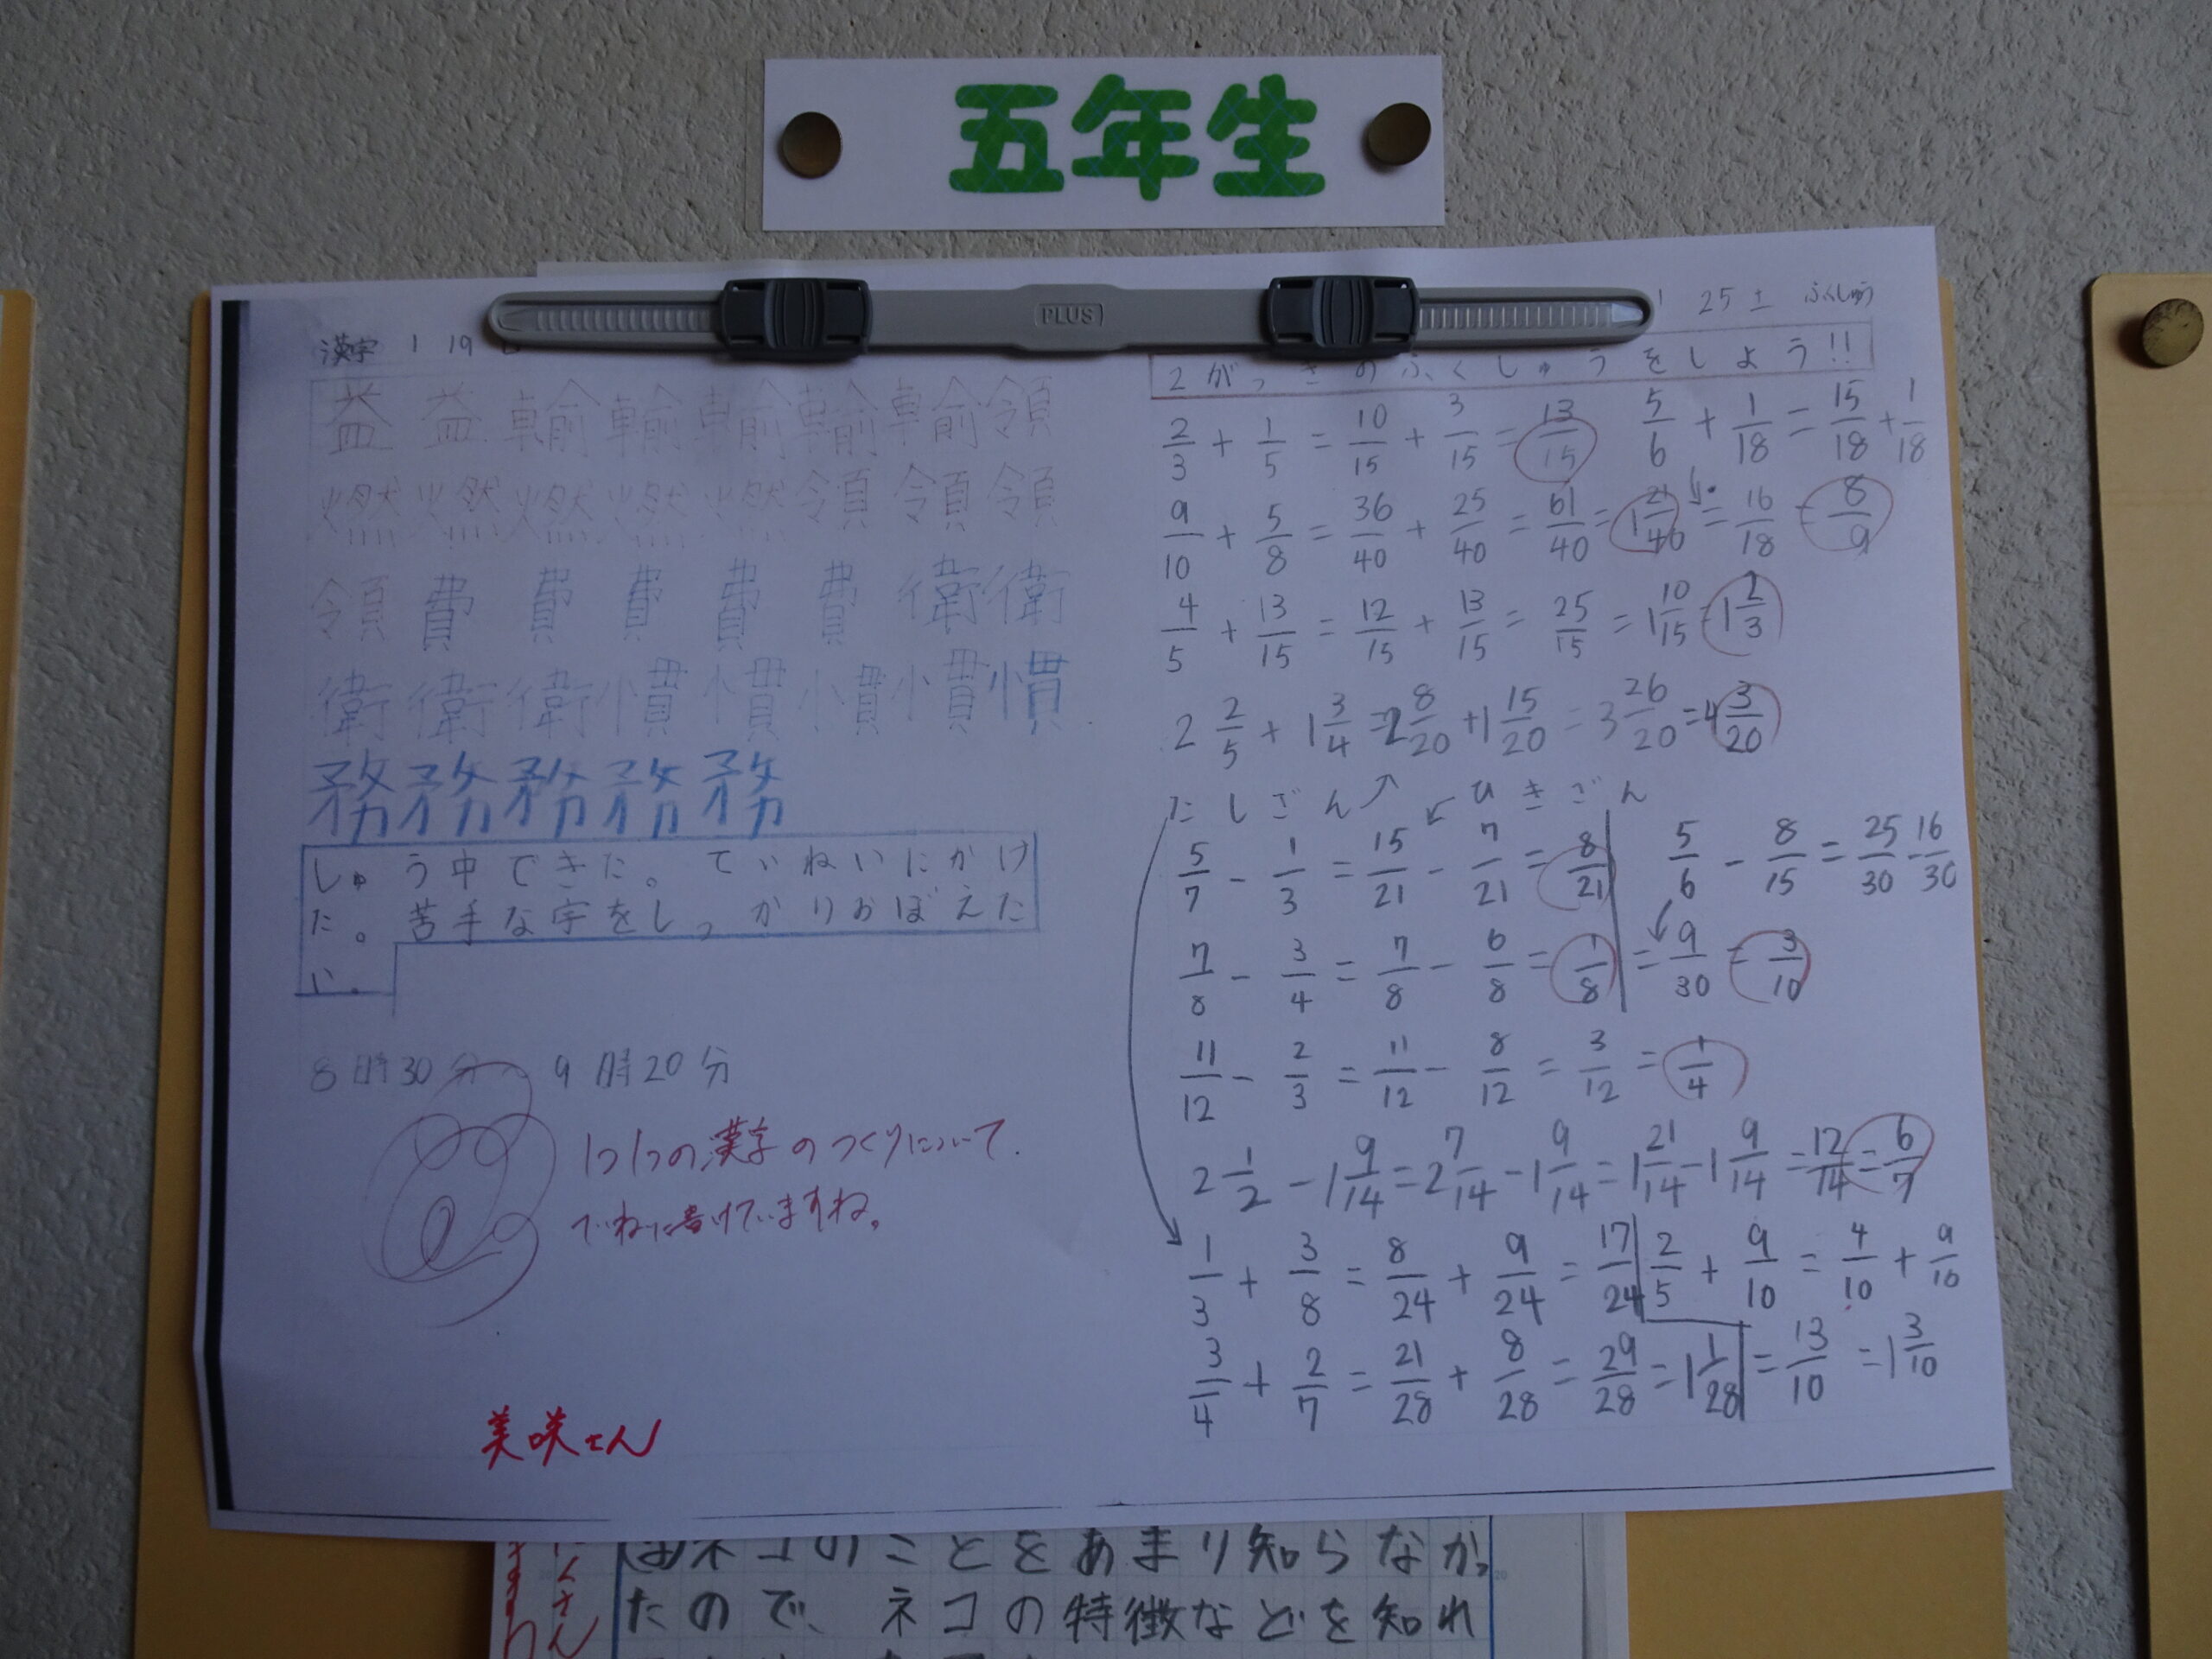 五年生
PLUS
漢字 1 19
益 益 輸 輸 輸 輸 輸 領
燃 燃 燃 燃 燃 領 領 領
領 費 費 費 費 費 衛 衛
衛 衛 衛 慣 慣 慣 慣 慣
務 務 務 務 務
しゅう中できた。ていねいにかけ
た。苦手な字をしっかりおぼえた
い。
8時30分 9時20分
1つ1つの漢字のつくりについて
ていねいに書けていますね。
美咲さん
25 土 ふくしゅう
2がっきのふくしゅうをしよう!!
2/3 + 1/5 = 10/15 + 3/15 = 13/15
5/6 + 1/18 = 15/18 + 1/18
= 16/18 = 8/9
9/10 + 5/8 = 36/40 + 25/40 = 61/40 = 1 21/40
4/5 + 13/15 = 12/15 + 13/15 = 25/15 = 1 10/15 = 1 2/3
2 2/5 + 1 3/4 = 2 8/20 + 1 15/20 = 3 26/20 = 4 3/20
たしざん↗ ↙ひきざん
5/7 - 1/3 = 15/21 - 7/21 = 8/21
5/6 - 8/15 = 25/30 - 16/30
= 9/30 = 3/10
7/8 - 3/4 = 7/8 - 6/8 = 1/8
11/12 - 2/3 = 11/12 - 8/12 = 3/12 = 1/4
2 1/2 - 1 9/14 = 2 7/14 - 1 9/14 = 1 21/14 - 1 9/14 = 12/14 = 6/7
1/3 + 3/8 = 8/24 + 9/24 = 17/24
2/5 + 9/10 = 4/10 + 9/10
= 13/10 = 1 3/10
3/4 + 2/7 = 21/28 + 8/28 = 29/28 = 1 1/28
ネコのことをあまり知らなかっ
たので、ネコの特徴などを知れ
さん